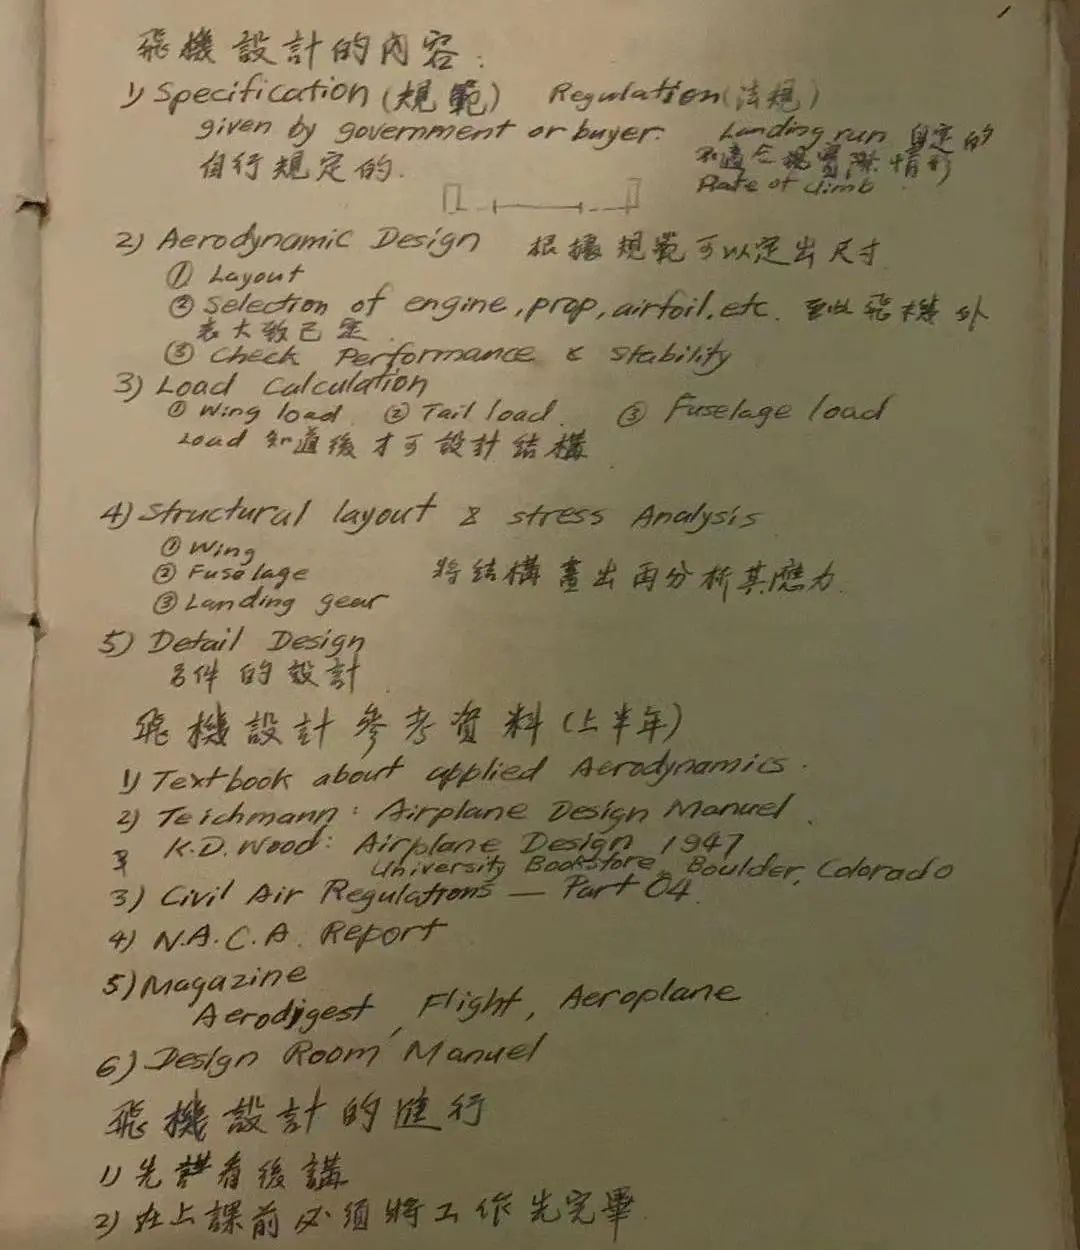 1
飛機設計的內容:
1) Specification (規範) Regulation (法規)
given by government or buyer. Landing run 自定的
自行規定的. 不適合現實際情形
Rate of climb
2) Aerodynamic Design 根據規範可以定出尺寸
① Layout
② Selection of engine, prop, airfoil, etc. 至此飛機外
表大致已定.
③ Check Performance & Stability
3) Load Calculation
① Wing load ② Tail load. ③ Fuselage load
Load 知道後才可設計結構
4) Structural layout & stress Analysis
① Wing
② Fuselage 將結構畫出再分析其應力.
③ Landing gear
5) Detail Design
各件的設計
飛機設計參考資料 (上半年)
1) Textbook about applied Aerodynamics.
2) Teichmann: Airplane Design Manuel.
K.D. Wood: Airplane Design 1947
University Bookstore, Boulder, Colorado
3) Civil Air Regulations — Part 04.
4) N.A.C.A. Report
5) Magazine
Aerodigest, Flight, Aeroplane
6) Design Room Manuel
飛機設計的進行
1) 先看後講
2) 在上課前必須將工作先完畢